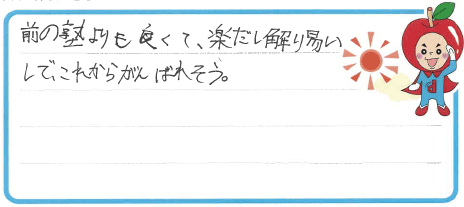 前の塾よりも良くて、楽だし解り易い
しで、これからがんばれそう。